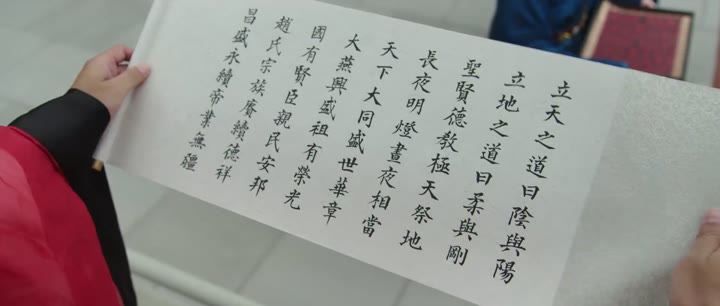 立天之道曰陰與陽
立地之道曰柔與剛
聖賢德教極天祭地
長夜明燈晝夜相當
天下大同盛世華章
大燕興盛祖有榮光
國有賢臣親民安邦
趙氏宗族賡續德祥
昌盛永續帝業無疆